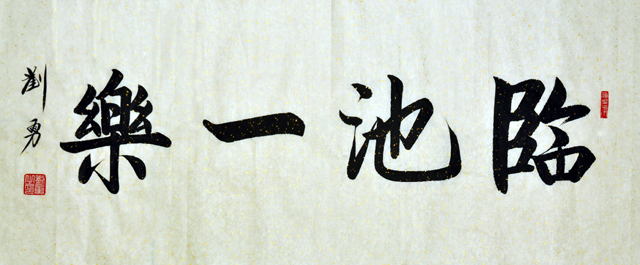 臨池一樂
劉勇